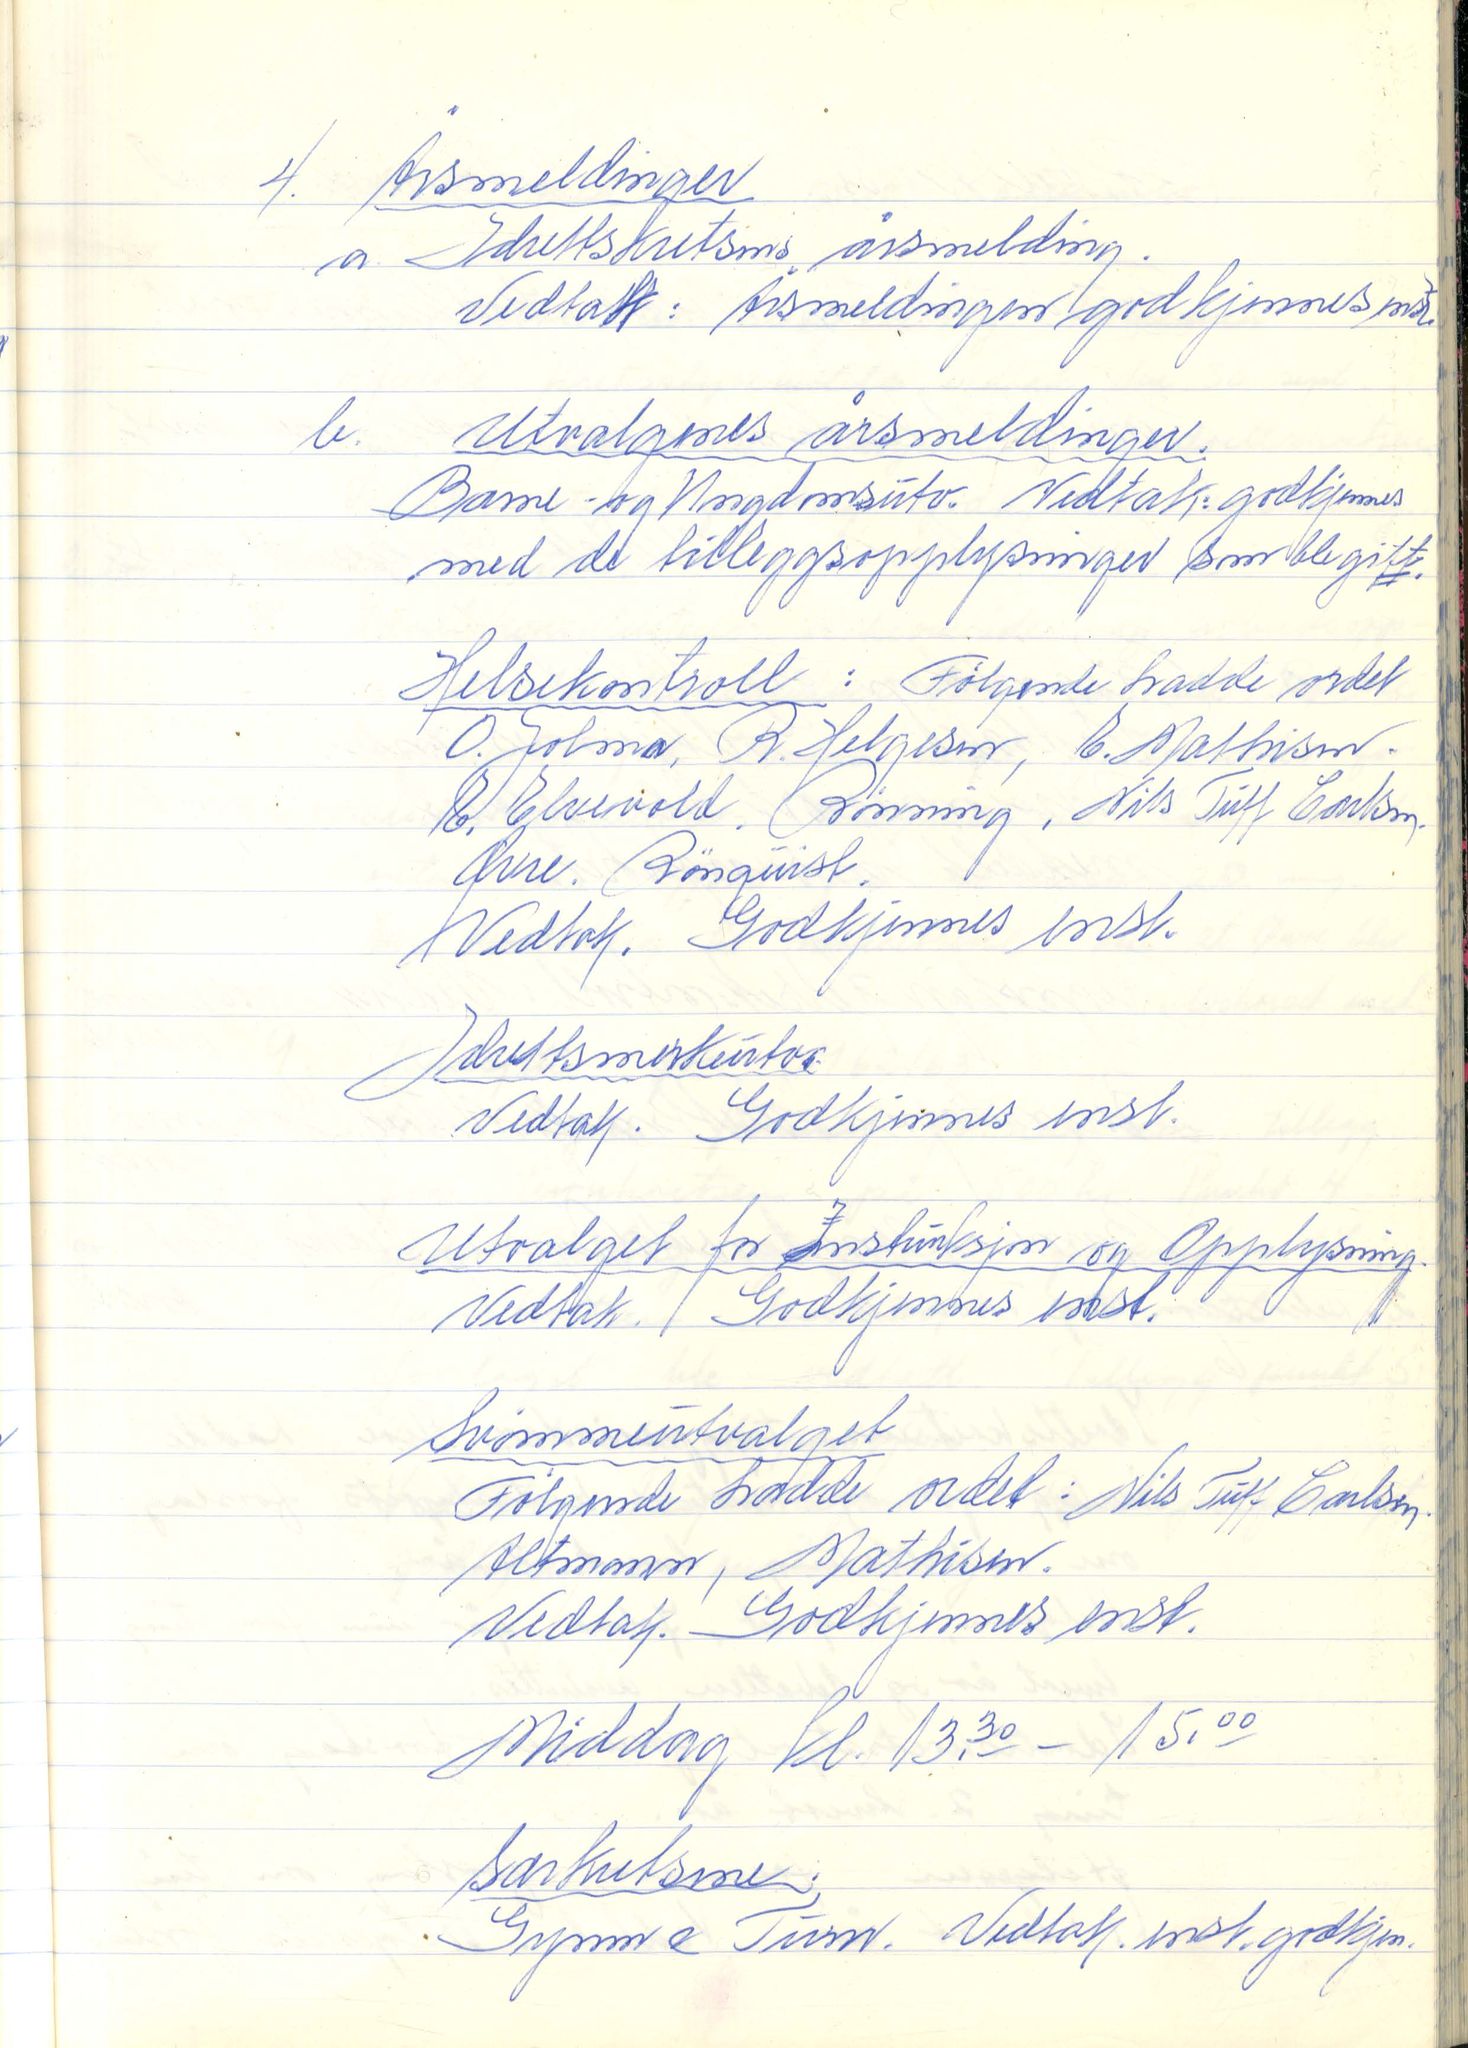 4. Årsmeldinger
a. Idrettskretsens årsmelding.
Vedtak: Årsmeldingen godkjennes enst.
b. Utvalgenes årsmeldinger.
Barne- og Ungdomsutv. Vedtak: godkjennes
med de tilleggsopplysninger som ble gitt.
Helsekontroll: Følgende hadde ordet
O. Jolma, R. Helgesen, E. Mathisen.
E. Elvevold. Rönning, Nils Tuff Carlsen.
Øvre. Rönquist.
Vedtak. Godkjennes enst.
Idrettsmerkeutv.
Vedtak. Godkjennes enst.
Utvalget for Instuksjon og Opplysning.
Vedtak. Godkjennes enst.
Svömmeutvalget
Følgende hadde ordet: Nils Tuff Carlsen.
Altmann, Mathisen.
Vedtak. Godkjennes enst.
Middag kl. 13.30 – 15.00
Særkretsene:
Gymn & Turn. Vedtak. enst. godkjen.